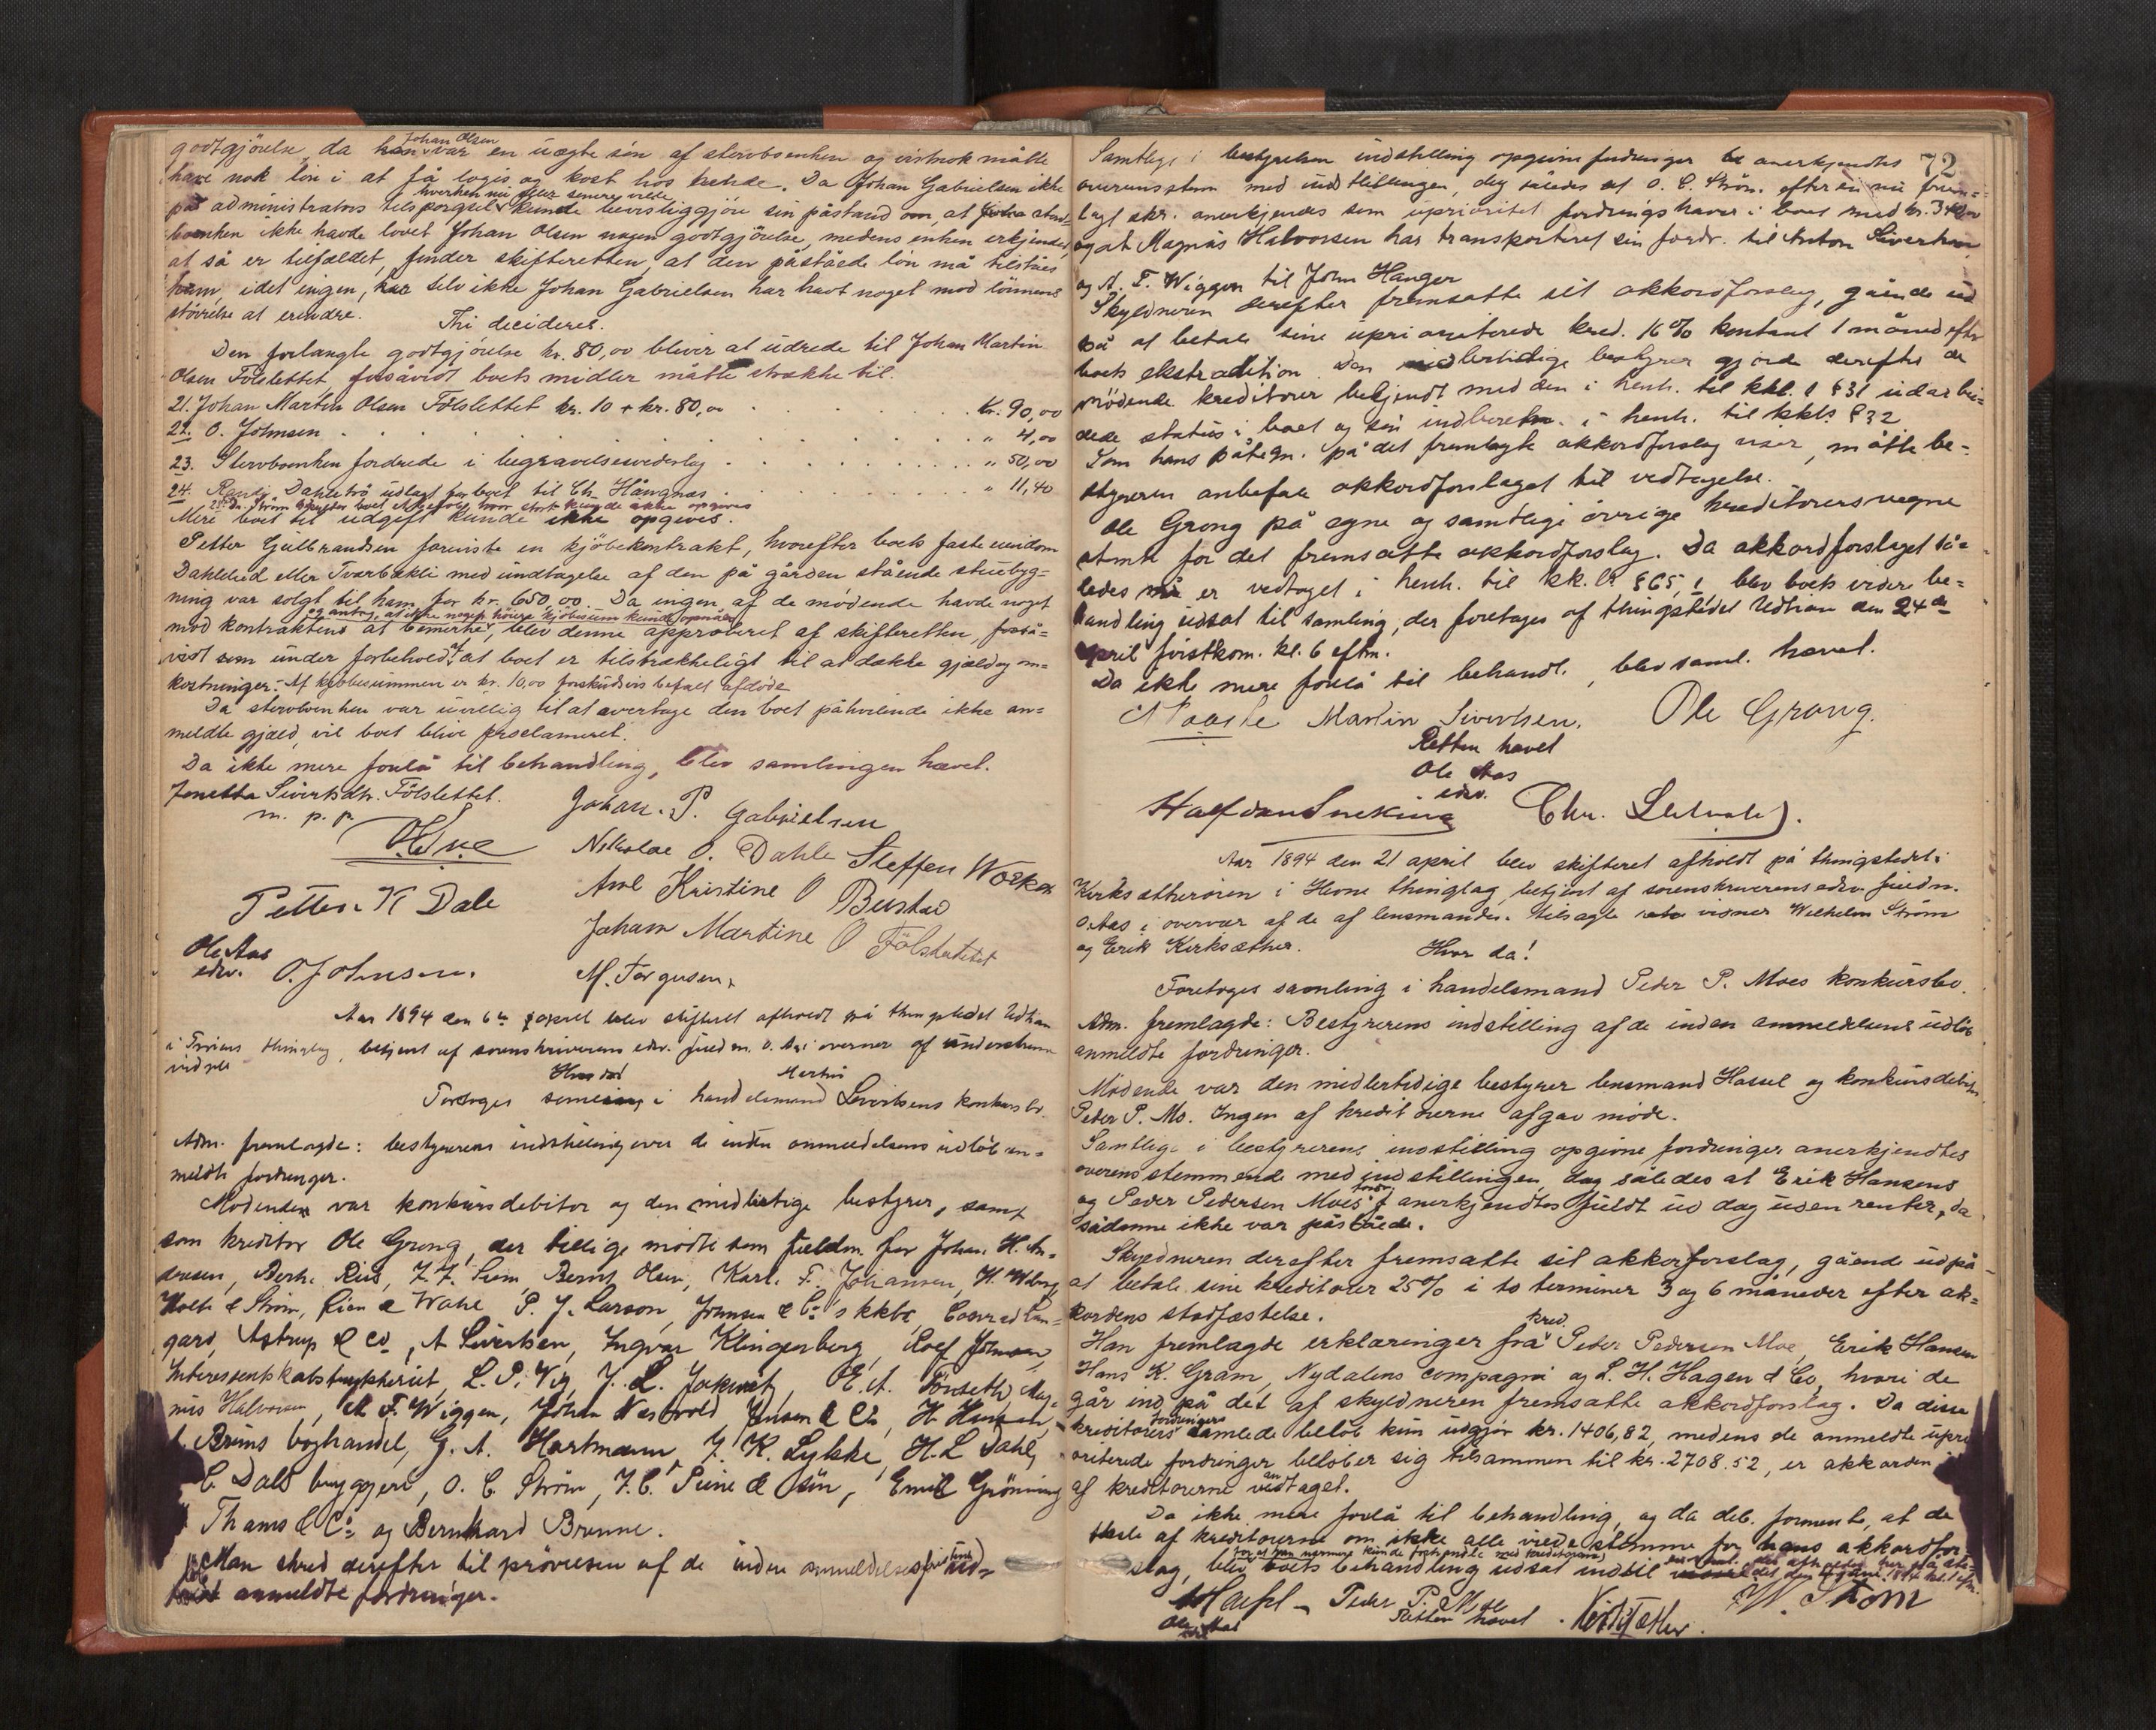 godtgjörelse, da han Johan Olsen var en uægte sön af stervboenken og vistnok måtte
have nok lön i at få logis og kost hos hende. Da Johan Gabrielsen ikke
på administrators tilspörgsel hverken nu eller senere vilde kunde bevisliggjöre sin påstand om, at sterv-
boenken ikke havde lovet Johan Olsen nogen godtgjörelse, medens enken erkjender,
at så er tilfældet, finder skifteretten, at den påståede lön må tilståes
ham, idet ingen, selv ikke Johan Gabrielsen har havt noget mod lönnens
störrelse at erindre.
Thi decideres.
Den forlangte godtgjörelse kr. 80,00 bliver at udrede til Johan Martin
Olsen Fölslettet, forsåvidt boets midler måtte strække til.
21. Johan Martin Olsen Fölslettet kr. 10 + kr. 80,00 . . . . kr. 90,00
22. O. Johnsen . . . . " 4,00
23. Stervboenken fordrede i begravelsesvederlag . . . . " 50,00
24. Dahlströ udlagt for boet til Ch. Hångnæs . . . . " 11,40
25. Dr. Ström skylder boet et beløb, hvor stort kunde ikke opgives
Mere boet til udgift kunde ikke opgives.
Petter Gulbrandsen foreviste en kjöbekontrakt, hvorefter boets faste eiendom
Dahlelied eller Tværbækli med undtagelse af den på gården stående stuebyg=
ning var solgt til ham for kr. 650,00. Da ingen af de mödende havde noget
mod kontrakten at bemærke, og antog, at ikke nogen höiere kjöbesum kunde opnåes, blev denne approberet af skifteretten, forså=
vidt som under forbehold af at boet er tilstrækkeligt til at dække gjæld og om=
kostninger. Af kjöbesummen er kr. 10,00 forskudsvis betalt afdöde
Da stervboenken var uvillig til at overtage den boet påhvilende ikke an=
meldte gjæld, vil boet blive proclameret.
Da ikke mere forelå til behandling, blev samlingen hævet.
Jonetta Sivertsdtr. Fölslettet.
m. p. p.
Johan. P. Gabrielsen
Nikolai O. Dahle Steffen
Petter K Dale
Kristine O Bustad
Johan Martine O Fölslettet
Ole Aas
edsv. O. Johnsen.
M. Torgersen,
Aar 1894 den 6te april blev skifteret afholdt på thingstedet Udhan
i Fröiens thinglag, betjent af sorenskriverens edsv. fuldm. O. Aas i overvær af underskrevne
vidner
Hvor da!
Foretoges samling i handelsmand Martin Sivertsens konkursbo.
Adm. fremlagde: bestyrerens indstilling over de inden anmeldelsens udlöb an=
meldte fordringer.
Mödende var konkursdebitor og den midlertidige bestyrer, samt
som kreditor Ole Grong, der tillige mödte som fuldm. for Johan H. An=
dresen, Berh. Riis, Bernt Olsen, Karl. F. Johansen, H. Wiberg,
Holte & Ström, Lien & Wahl, P. J. Larson, Johnsen & Co's kkbo, Conrad Lan=
gard, Astrup & Co, A. Sivertsen, Ingvar Klingenberg, Rolf Johnsen,
Interessentskabstrykkeriet, L. P. Vig, J. L. Jakwitz, O. A. Tönseth, Mag=
nus Halvorsen, A. F. Wiggen, Johan Nestvold, Jensen & Co, H. Hansen,
Bruns boghandel, G. A. Hartmann, J. K. Lykke, H. L. Dahl,
E. Dahls bryggeri, O. C. Ström, J. C. Piene & sön, Emil Grönning
Thams & Co og Bernhard Brenne.
Man skred derefter til prövelsen af de inden anmeldelsesfristens ud=
löb anmeldte fordringer.
72
Samtlige i bestyrelsen indstilling opgivne fordringer anerkjendtes
overensstem. med indstillingen, dog således at O. C. Ström. efter en nu frem=
lagt skr. anerkjendes som uprioritet fordringshaver i boet med kr. 340,00
og at Magnus Halvorsen har transporteret sin fordr. til Anton Sivertsen,
og A. F. Wiggen til John Hanger
Skyldneren derefter fremsatte sit akkordforslag, gående ud
på at betale sine uprioriterede kred. 16 % kontant 1 måned efter
boets ekstradition. Den midlertidige bestyrer gjorde derefter de
mödende kreditorer bekjendt med den i henh. til kkl. § 31 udarbei=
dede status i boet og sin indberetn. i henh. til kkls § 32
Som hans påtegn. på det fremlagte akkordforslag viser, måtte be=
styreren anbefale akkordforslaget til vedtagelse.
Ole Grong på egne og samtlige övrige kreditorers vegne
stemte for det fremsatte akkordforslag. Da akkordforslaget så=
ledes er vedtaget i henh. til kk. l. § 65, 1 blev boets videre be=
handling udsat til samling, der foretages af thingstedet Udhan den 24de
april förstkom. kl. 6 eftm.
Da ikke mere forelå til behandl., blev saml. hævet.
Martin Sivertsen. Ole Grong.
Retten hævet
Ole Aas
edsv.
Halfdan Chr.
Aar 1894 den 21 april blev skifteret afholdt på thingstedet i
Kirksæterören i Hevne thinglag, betjent af sorenskriverens edsv. fuldm.
O. Aas i overvær af de af lensmanden tilsagte vidner Wilhelm Ström
og Erik Kirksæther.
Hvor da!
Foretoges samling i handelsmand Peder P. Moes konkursbo.
Adm. fremlagde: Bestyrerens indstilling af de inden anmeldelsens udlöb
anmeldte fordringer.
Mödende var den midlertidige bestyrer lensmand Hassel og konkursdebitor
Peder P. Mo. Ingen af kreditorerne afgav möde.
Samtlige i bestyrerens indstilling opgivne fordringer anerkjendtes
overensstemmende med indstillingen, dog således at Erik Hansens
og Peder Pedersen Moes fordr. anerkjendtes fuldt ud dog uden renter, da
sådanne ikke var påståede.
Skyldneren derefter fremsatte sit akkorforslag, gående ud på
at betale sine kreditorer 25 % i to terminer 3 og 6 måneder efter ak=
kordens stadfæstelse.
Han fremlagde erklæringer fra kred. Peder Pedersen Moe, Erik Hansen
Hans K. Gram, Nydalens compagni og L. H. Hagen & Co, hvori de
går ind på det af skyldneren fremsatte akkordforslag. Da disse
kreditorers fordringers samlede belöb kun udgjör kr. 1406,82, medens de anmeldte upri=
oriterede fordringer belöber sig tilsammen til kr. 2708.52, er akkorden
af kreditorerne vedtaget.
Da ikke mere forelå til behandling, og da deb. formente, at de
fleste af kreditorerne om ikke alle vilde stemme for hans akkordfor=
slag, blev boets behandling udsat indtil
Hassel Peder P. Moe W. Ström
Ole Aas
edsv. Retten hævet. Kirksæther.